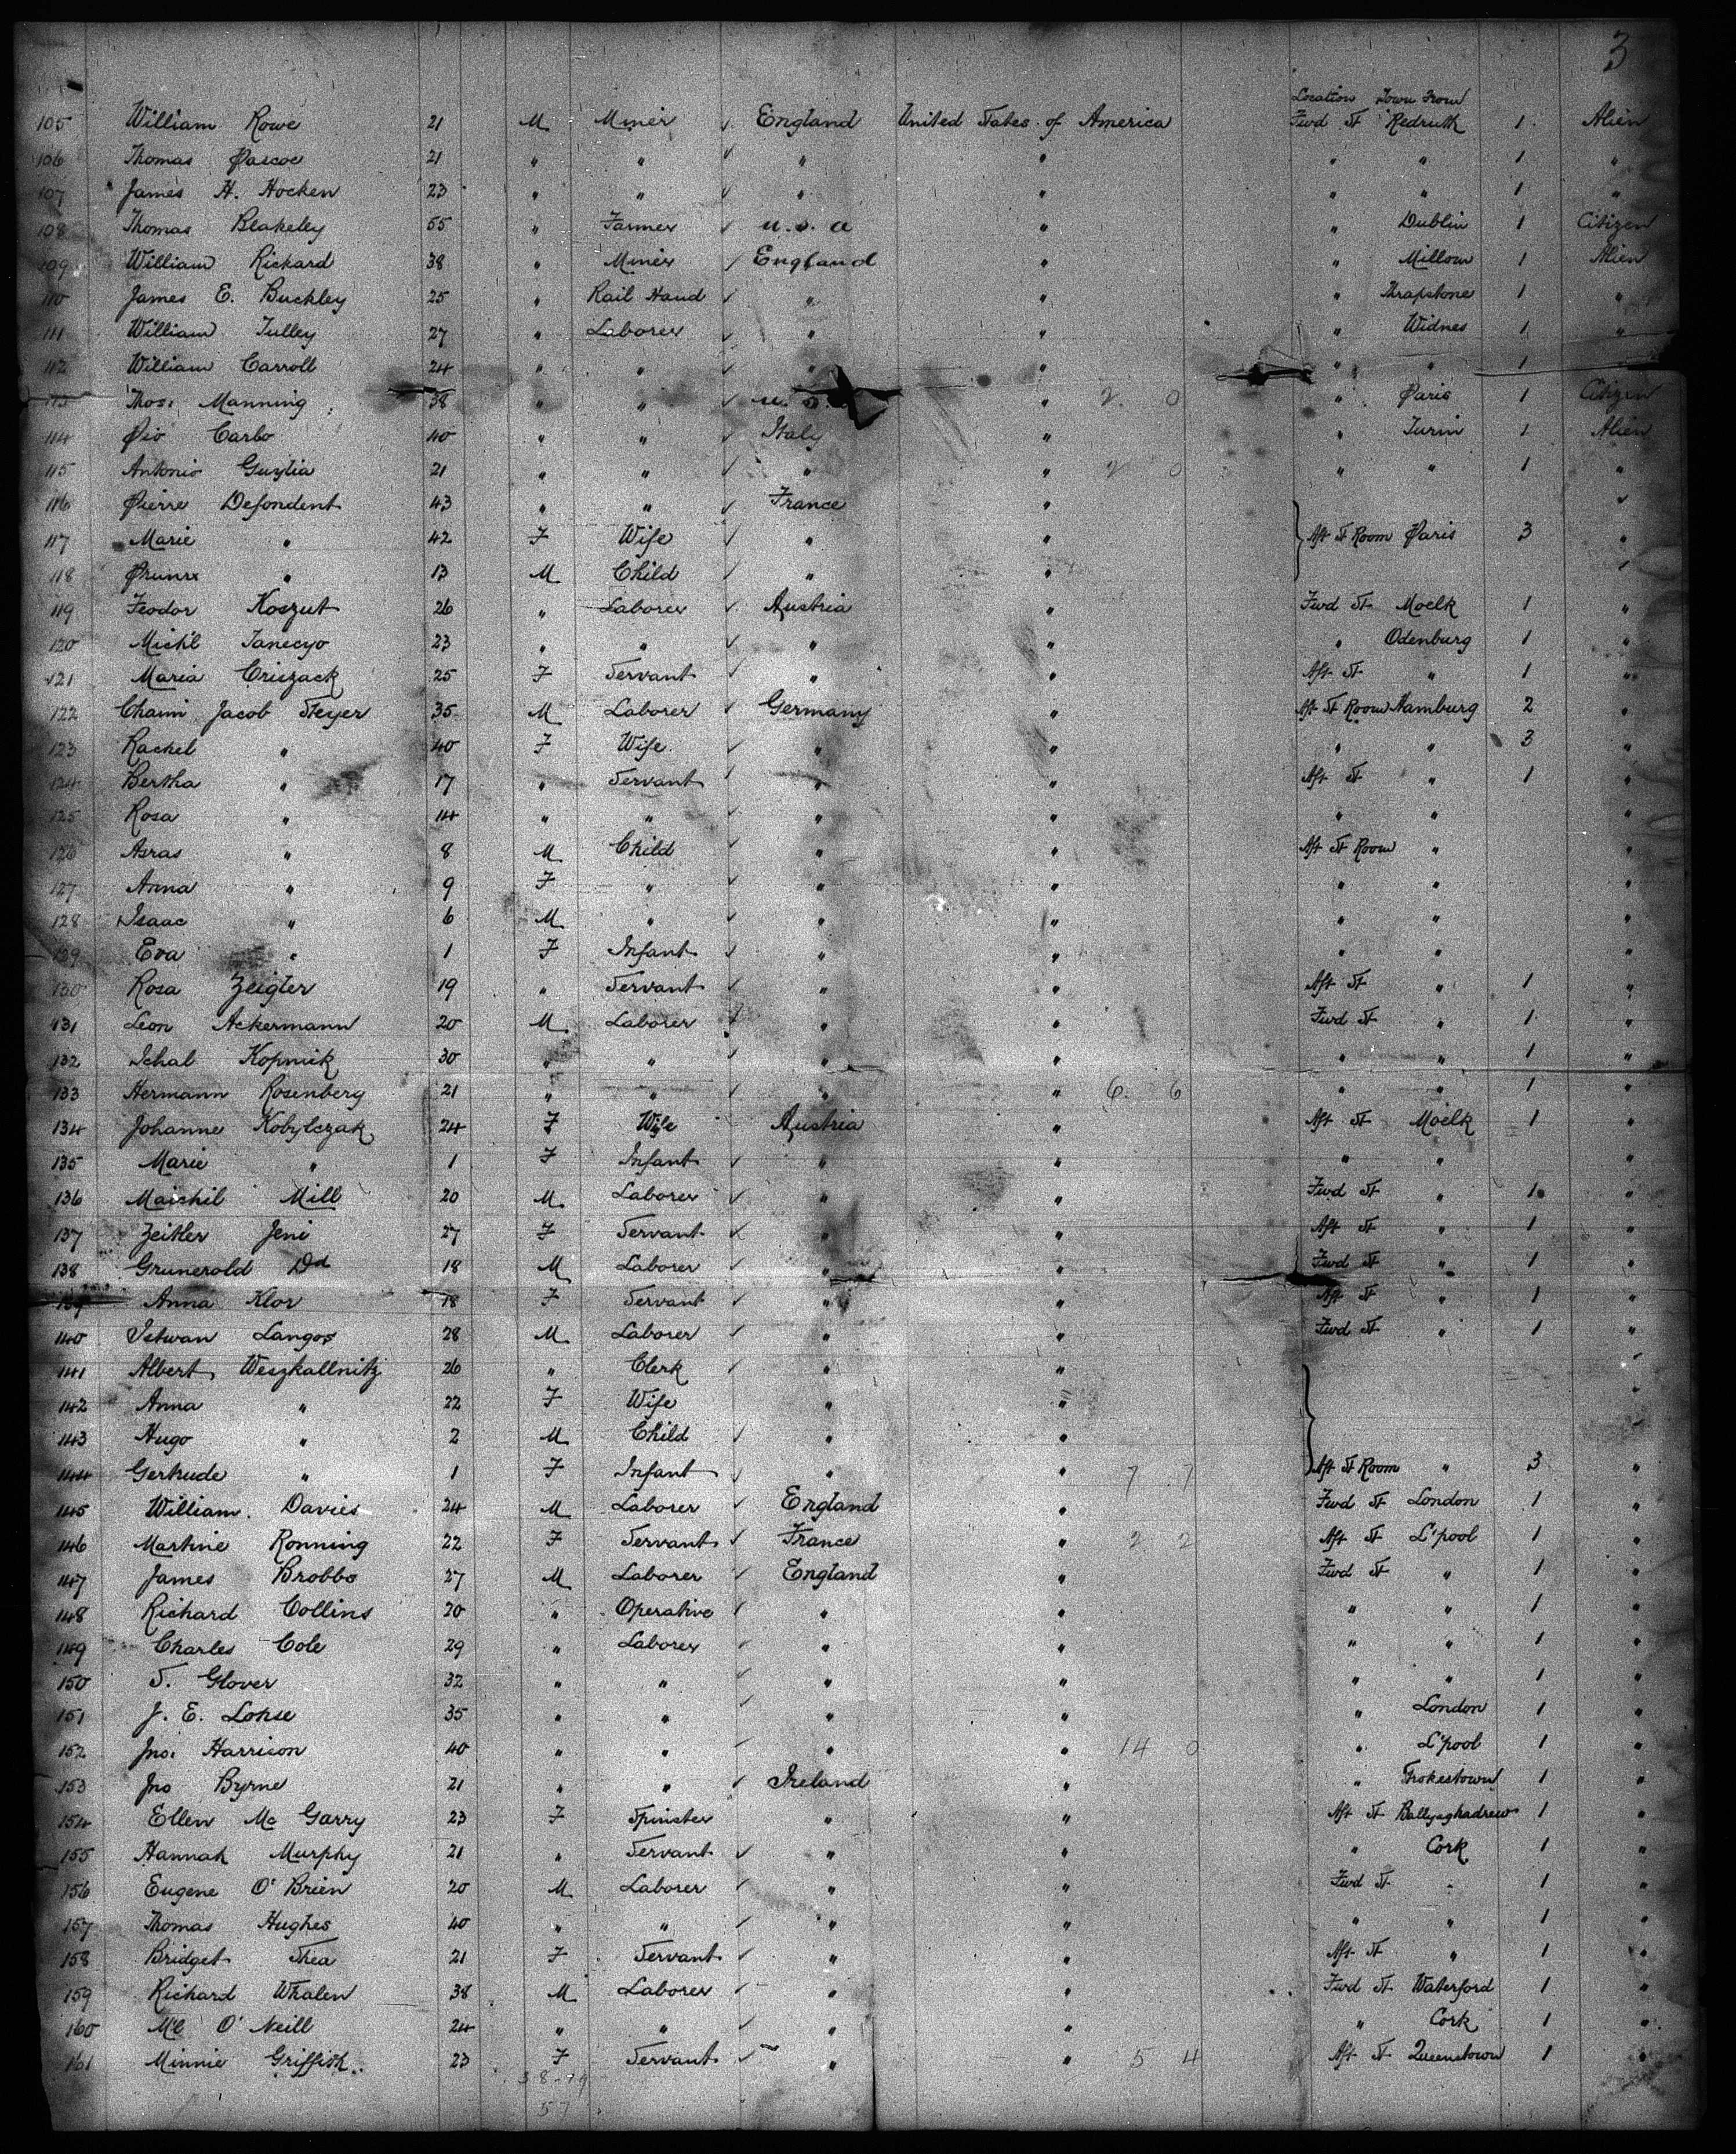 3
Location Town From
105 William Rowe 21 M Miner ✓ England United States of America Fwd St Redruth 1 Alien
106 Thomas Pascoe 21 " " ✓ " " " " 1 "
107 James H. Hocken 23 " " ✓ " " " " 1 "
108 Thomas Blakeley 55 " Farmer ✓ U.S.A " " Dublin 1 Citizen
109 William Rickard 38 " Miner ✓ England " " Millow 1 Alien
110 James E. Buckley 25 " Rail Hand ✓ " " " Thrapstone 1 "
111 William Tulley 27 " Laborer ✓ " " " Widnes 1 "
112 William Carroll 24 " " ✓ " " " " 1
113 Thos. Manning 38 " " ✓ U.S. " 2 0 " Paris 1 Citizen
114 Pio Carbo 40 " " ✓ Italy " " Turin 1 Alien
115 Antonio 21 " " ✓ " " 2 0 " " 1 "
116 Pierre Defondent 43 " " ✓ France " "
117 Marie " 42 F Wife ✓ " " Aft St Room Paris 3 "
118 " 13 M Child ✓ " " "
119 Feodor Koszut 26 " Laborer ✓ Austria " Fwd St Moelk 1 "
120 Mich'l Janecyo 23 " " ✓ " " " Odenburg 1 "
121 Maria Criszack 25 F Servant ✓ " " Aft St " 1 "
122 Chaim Jacob Steyer 35 M Laborer ✓ Germany " Aft St Room Hamburg 2 "
123 Rachel " 40 F Wife ✓ " " " " 3 "
124 Bertha " 17 " Servant ✓ " " Aft St " 1 "
125 Rosa " 14 " " ✓ " " " " "
126 Asras " 8 M Child ✓ " " Aft St Room " "
127 Anna " 9 F " ✓ " " " " "
128 Isaac " 6 M " ✓ " " " " "
129 Eva " 1 F Infant ✓ " " " " "
130 Rosa Zeigler 19 " Servant ✓ " " Aft St " 1 "
131 Leon Ackermann 20 M Laborer ✓ " " Fwd St " 1 "
132 Schal Kopnick 30 " " ✓ " " " " 1 "
133 Hermann Rosenberg 21 " " ✓ " " 6 6 " " 1 "
134 Johanne Kobylczak 24 F Wife Austria " Aft St Moelk 1 "
135 Marie " 1 F Infant ✓ " " " " "
136 Maichil Mill 20 M Laborer ✓ " " Fwd St " 1 "
137 Zeitler Jeni 27 F Servant ✓ " " Aft St " 1 "
138 Grunerold Dd 18 M Laborer ✓ " " Fwd St " 1 "
139 Anna Klor 18 F Servant ✓ " " Aft St " 1 "
140 Istwan Langos 28 M Laborer ✓ " " Fwd St " 1 "
141 Albert Weszkallnitz 26 " Clerk ✓ " "
142 Anna " 22 F Wife " "
143 Hugo " 2 M Child ✓ " "
144 Gertrude " 1 F Infant ✓ " " 7 7 Aft St Room " 3 "
145 William Davies 24 M Laborer ✓ England " Fwd St London 1 "
146 Martine Ronning 22 F Servant ✓ France " 2 2 Aft St L'pool 1 "
147 James Brobbs 27 M Laborer ✓ England " Fwd St " 1 "
148 Richard Collins 20 " Operative ✓ " " " " 1 "
149 Charles Cole 29 " Laborer ✓ " " " " 1 "
150 S. Glover 32 " " ✓ " " " " 1 "
151 J. E. Lohse 35 " " ✓ " " " London 1 "
152 Jno. Harrison 40 " " ✓ " " 14 0 " L'pool 1 "
153 Jno Byrne 21 " " ✓ Ireland " " Strokestown 1 "
154 Ellen Mc Garry 23 F Spinster " " Aft St Ballyaghadrew 1 "
155 Hannah Murphy 21 " Servant ✓ " " " Cork 1 "
156 Eugene O'Brien 20 M Laborer ✓ " " Fwd St " 1 "
157 Thomas Hughes 40 " " ✓ " " " " 1 "
158 Bridget Shea 21 F Servant ✓ " " Aft St " 1 "
159 Richard Whalen 38 M Laborer ✓ " " Fwd St Waterford 1 "
160 Ml O'Neill 24 " " ✓ " " " Cork 1 "
161 Minnie Griffith 23 F Servant ✓ " " 5 4 Aft St Queenstown 1 "
38-19
57